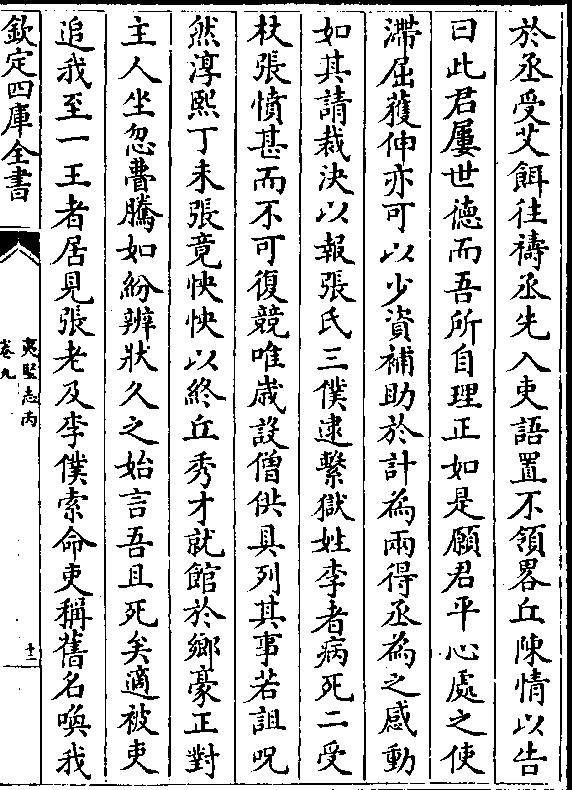 於丞受艾餌往禱丞先入吏語置不領畧丘陳情以告
曰此君屢世德而吾所自理正如是願君平心處之使
滯屈獲伸亦可以少資補助於計為兩得丞為之感動
如其請裁決以報張氏三僕逮繫獄姓李者病死二受
杖張憤甚而不可復競唯歳設僧供具列其事若詛呪
然淳熙丁未張竟怏怏以終丘秀才就館於鄉豪正對
主人坐忽瞢騰如紛辨狀久之始言吾且死矣適被吏
追我至一王者居見張老及李僕索命吏稱舊名喚我
欽定四庫全書
夷堅志丙
卷九
十二